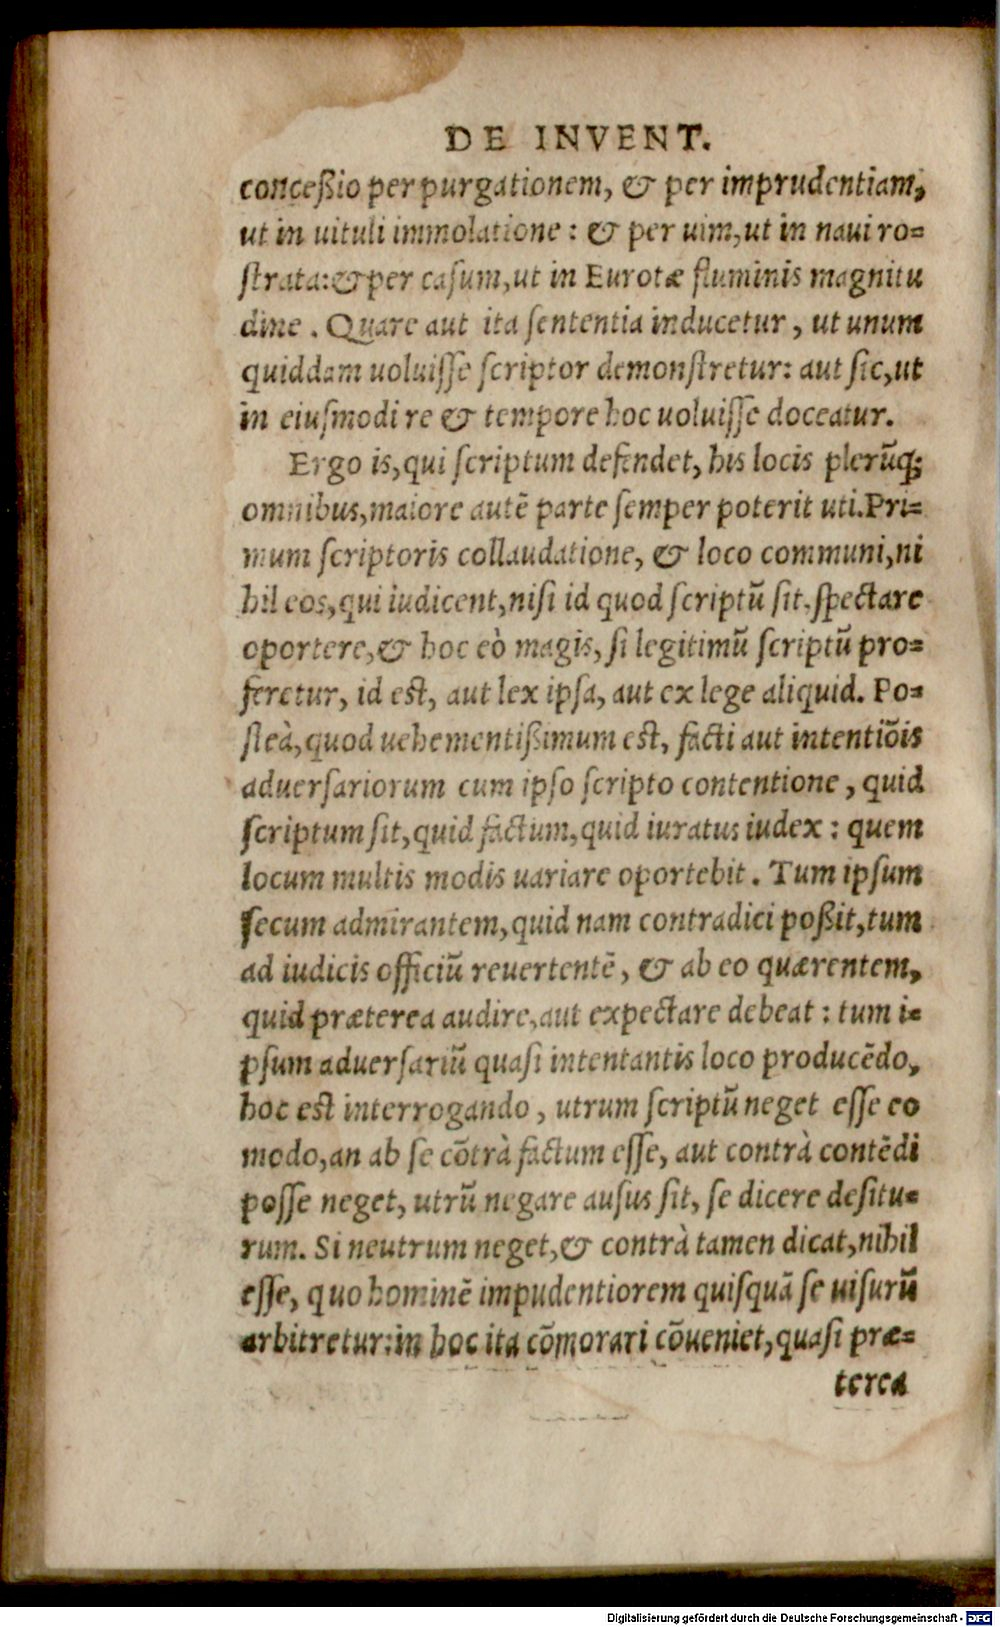 DE INVENT.
conceßio per purgationem, & per imprudentiam,
ut in uituli immolatione : & per uim, ut in naui ro=
ſtrata: & per caſum, ut in Eurotæ fluminis magnitu
dine . Quare aut ita ſententia inducetur, ut unum
quiddam uoluiſſe ſcriptor demonſtretur: aut ſic, ut
in eiuſmodi re & tempore hoc uoluiſſe doceatur.
Ergo is, qui ſcriptum defendet, his locis plerũq;
omnibus, maiore autẽ parte ſemper poterit uti. Pri=
mum ſcriptoris collaudatione, & loco communi, ni
hil eos, qui iudicent, niſi id quod ſcriptũ ſit, ſpectare
oportere, & hoc eò magis, ſi legitimũ ſcriptũ pro=
feretur, id eſt, aut lex ipſa, aut ex lege aliquid. Po=
ſteà, quod uehementißimum eſt, facti aut intentiõis
aduerſariorum cum ipſo ſcripto contentione, quid
ſcriptum ſit, quid factum, quid iuratus iudex : quem
locum multis modis uariare oportebit . Tum ipſum
ſecum admirantem, quid nam contradici poßit, tum
ad iudicis officiũ reuertentẽ, & ab eo quærentem,
quid præterea audire, aut expectare debeat : tum i=
pſum aduerſariũ quaſi intentantis loco producẽdo,
hoc est interrogando, utrum ſcriptũ neget eſſe eo
modo, an ab ſe cõtrà factum eſſe, aut contrà contẽdi
poſſe neget, utrũ negare auſus ſit, ſe dicere deſitu=
rum. Si neutrum neget, & contrà tamen dicat, nihil
eſſe, quo hominẽ impudentiorem quiſquã ſe uiſurũ
arbitretur: in hoc ita cõmorari cõueniet, quaſi præ=
terea
Digitalisierung gefördert durch die Deutsche Forschungsgemeinschaft - DFG